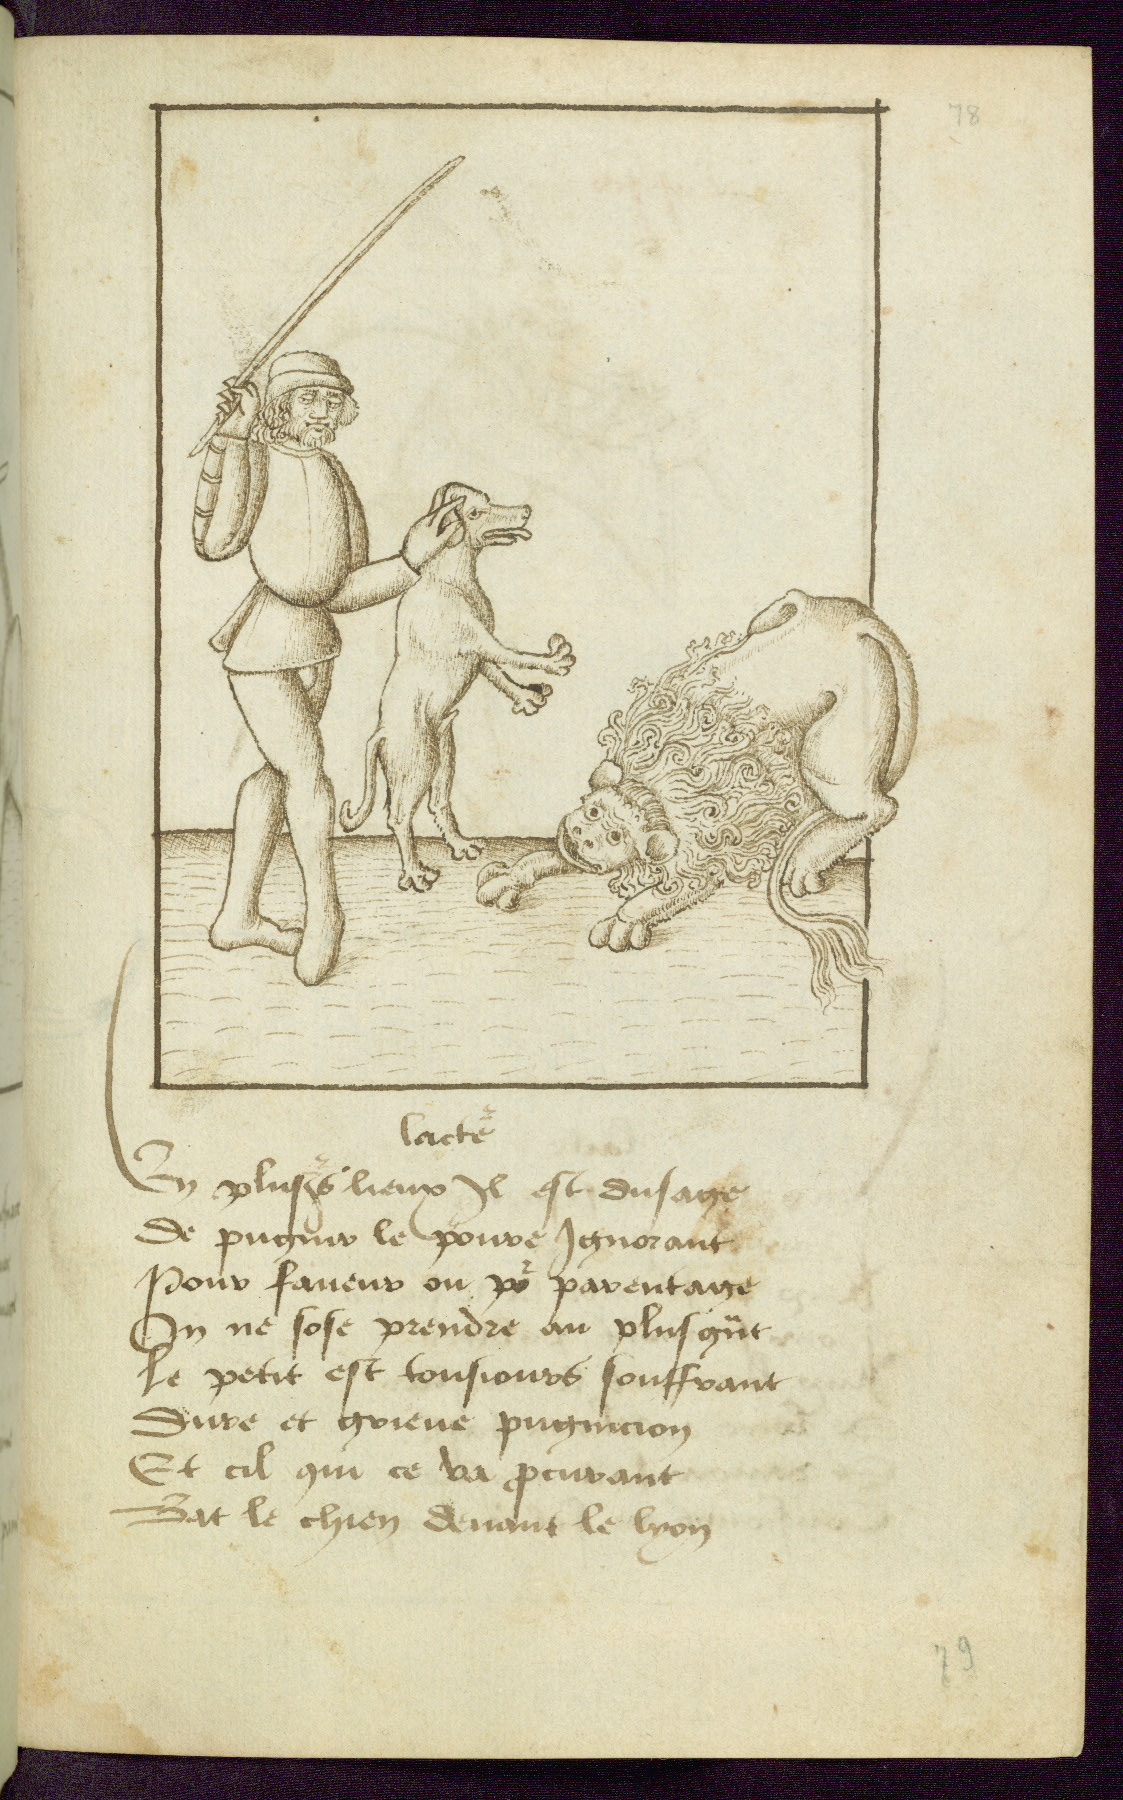 78
lacte᷑
En plus᷑s lieux Il est dusage
De pugnir le poure Ignorant
Pour faueur ou po᷑ parentage
On ne sose prendre au plus gñt
Le petit est tousiours souffrant
Dure et grieue pugnicion
Et cil qui ce va ꝓcurant
Bat le chien deuant le lyon
79